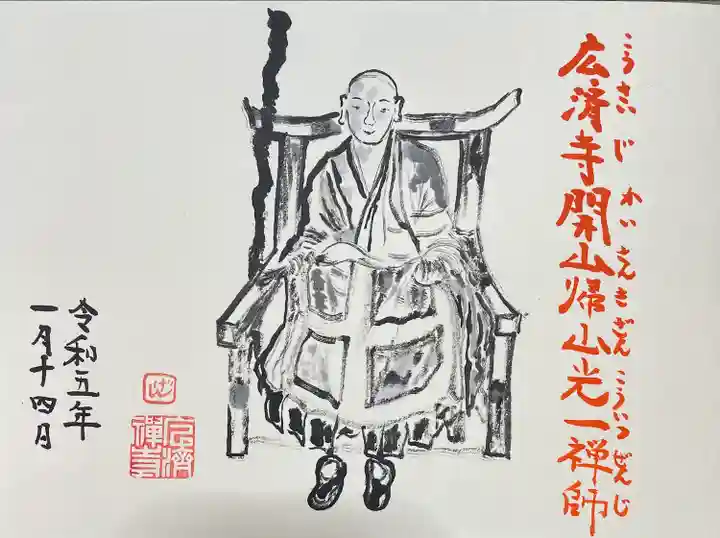 広済寺開山帰山光一禅師
こうさいじ かいさんきざん こういつぜんじ
令和五年
一月十四日
広濟
禪寺